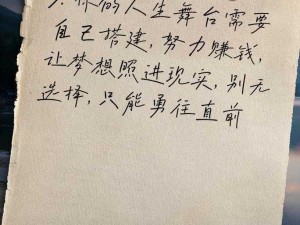 你的人生舞台需要
自己搭建，努力赚钱，
让梦想照进现实，别无
选择，只能勇往直前